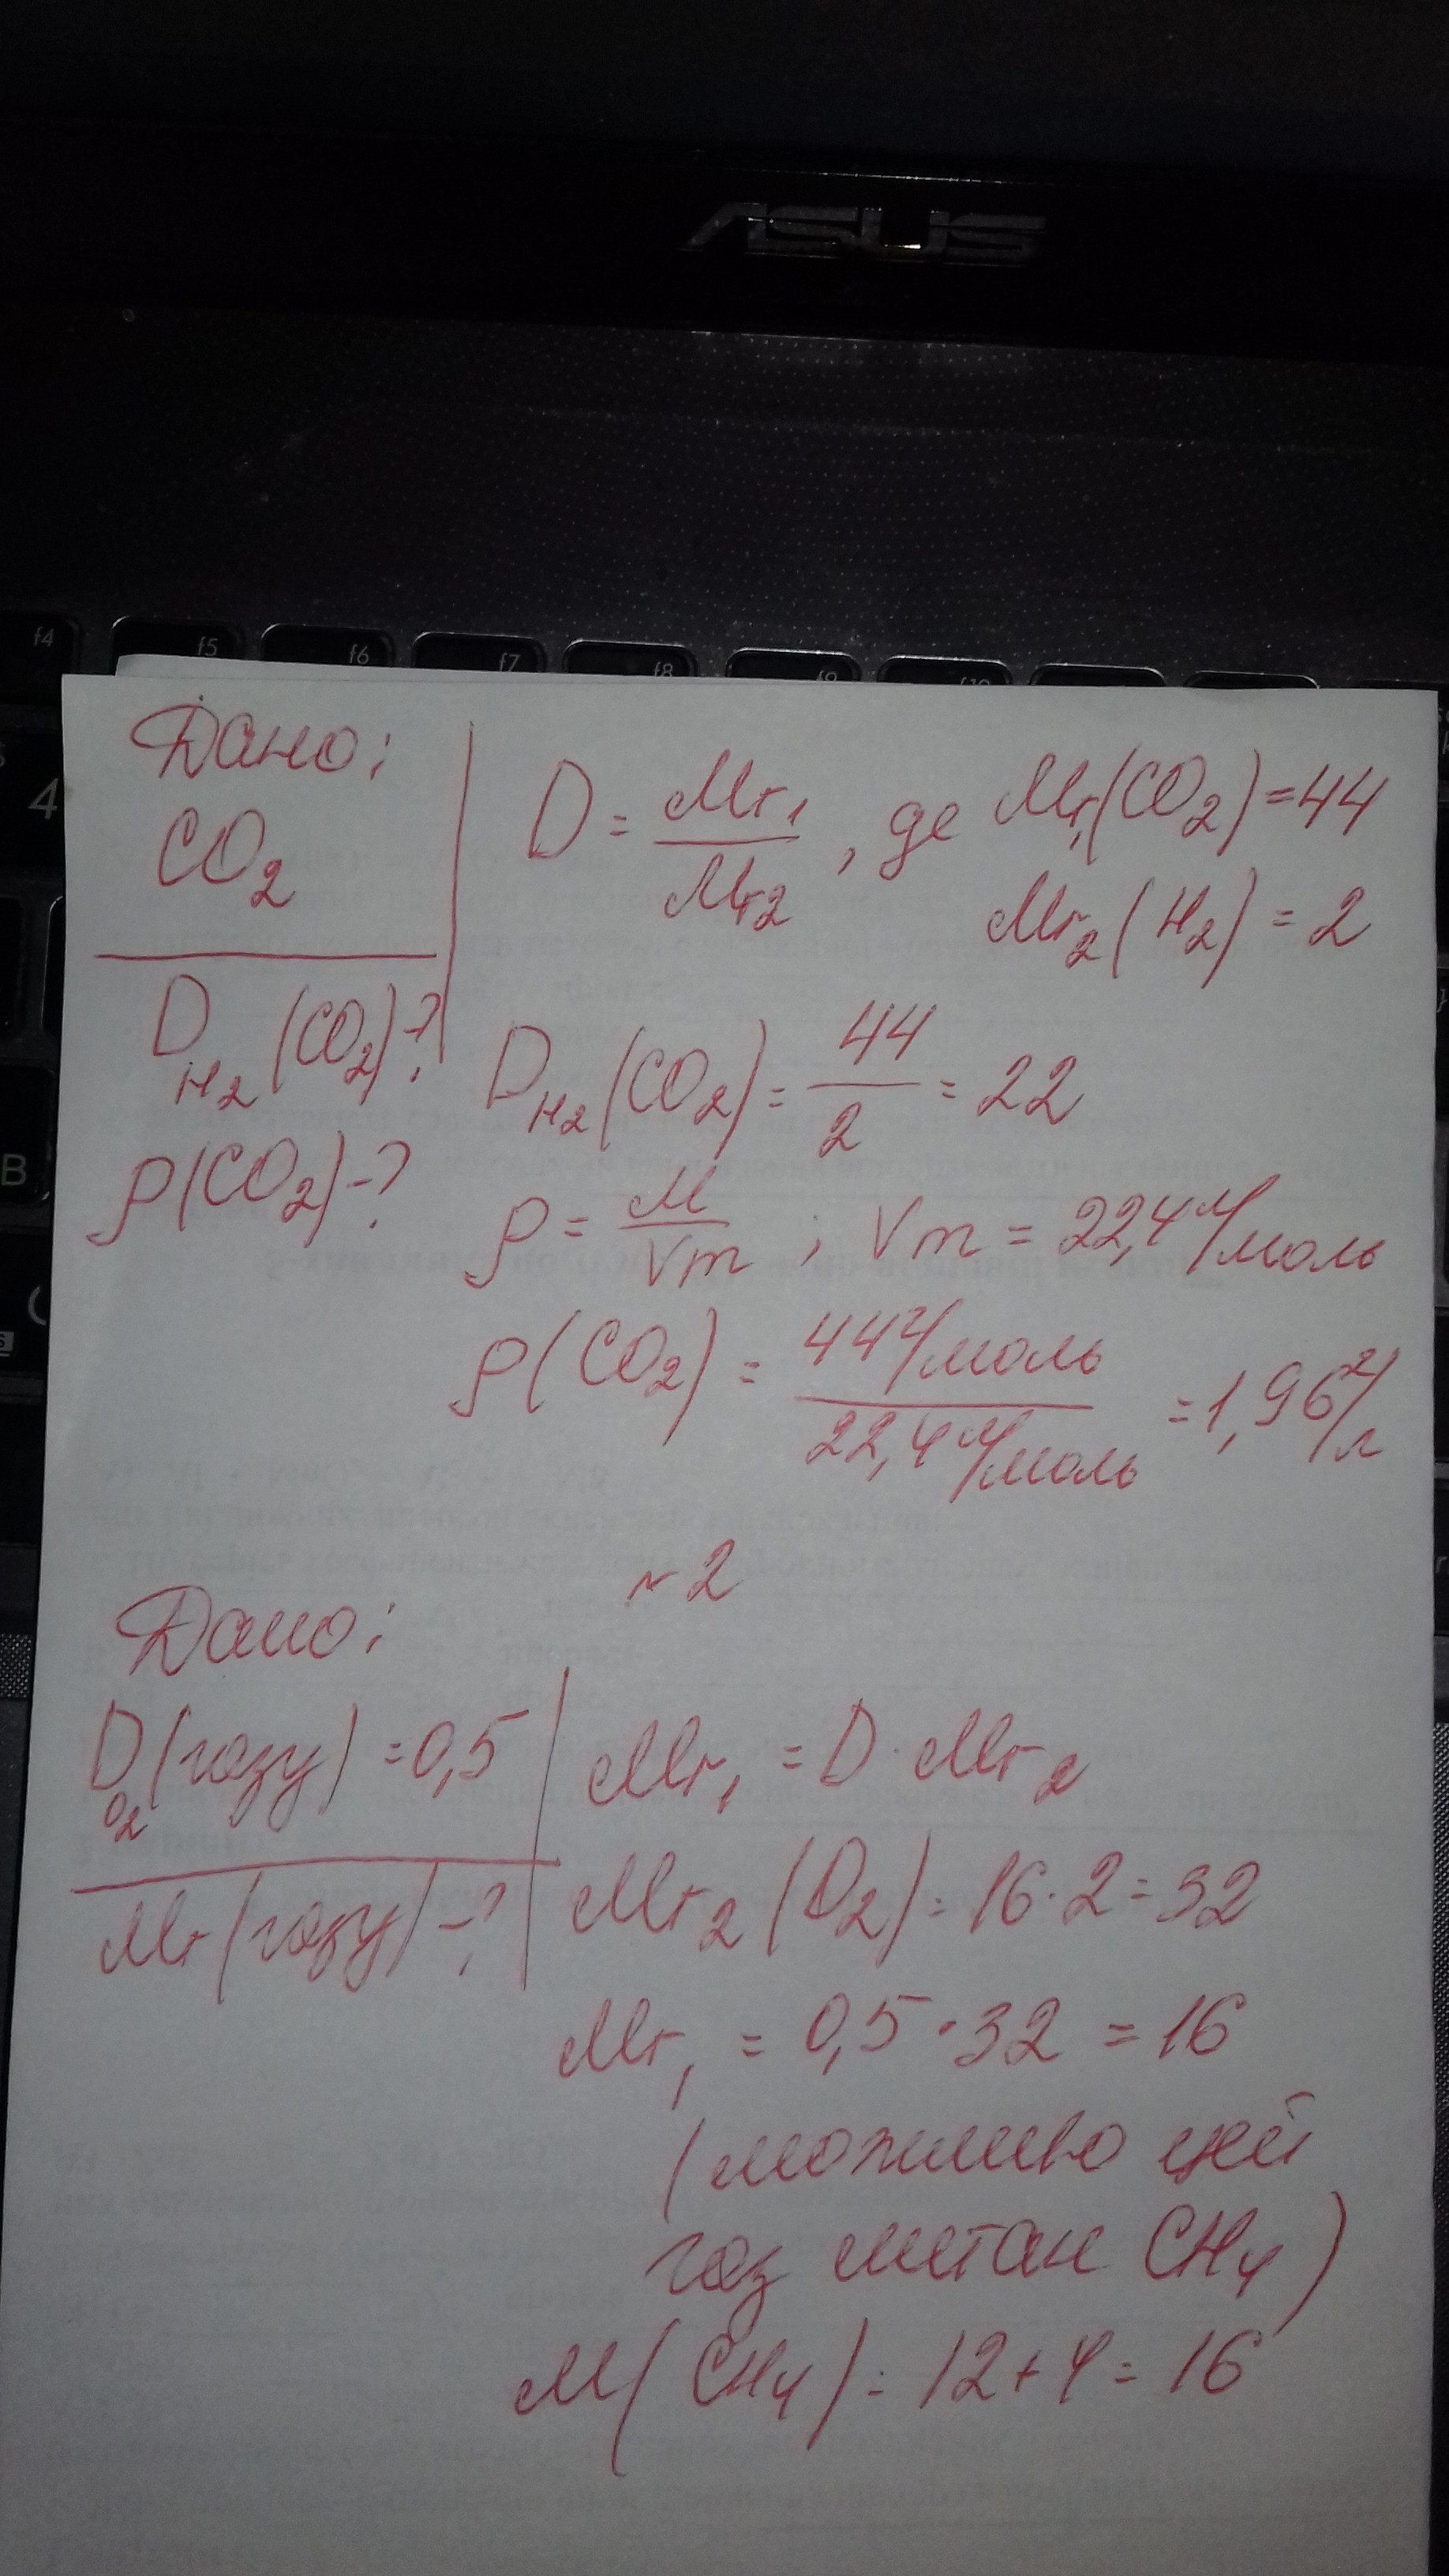 ASUS
f4 f5 f6 f7 f8 f9 f10
4
B
Дано:
CO2
DH2(CO2)-?
ρ(CO2)-?
D = Mr1/Mr2, де Mr1(CO2)=44
Mr2(H2) = 2
DH2(CO2) = 44/2 = 22
ρ = M/Vm ; Vm = 22,4 л/моль
ρ(CO2) = 44 г/моль / 22,4 л/моль = 1,96 г/л
~2
Дано:
DO2(газу) = 0,5
Mr(газу)-?
Mr1 = D · Mr2
Mr2(O2) = 16·2=32
Mr1 = 0,5·32 = 16
(можливо цей
газ метан CH4)
M(CH4) = 12+4=16